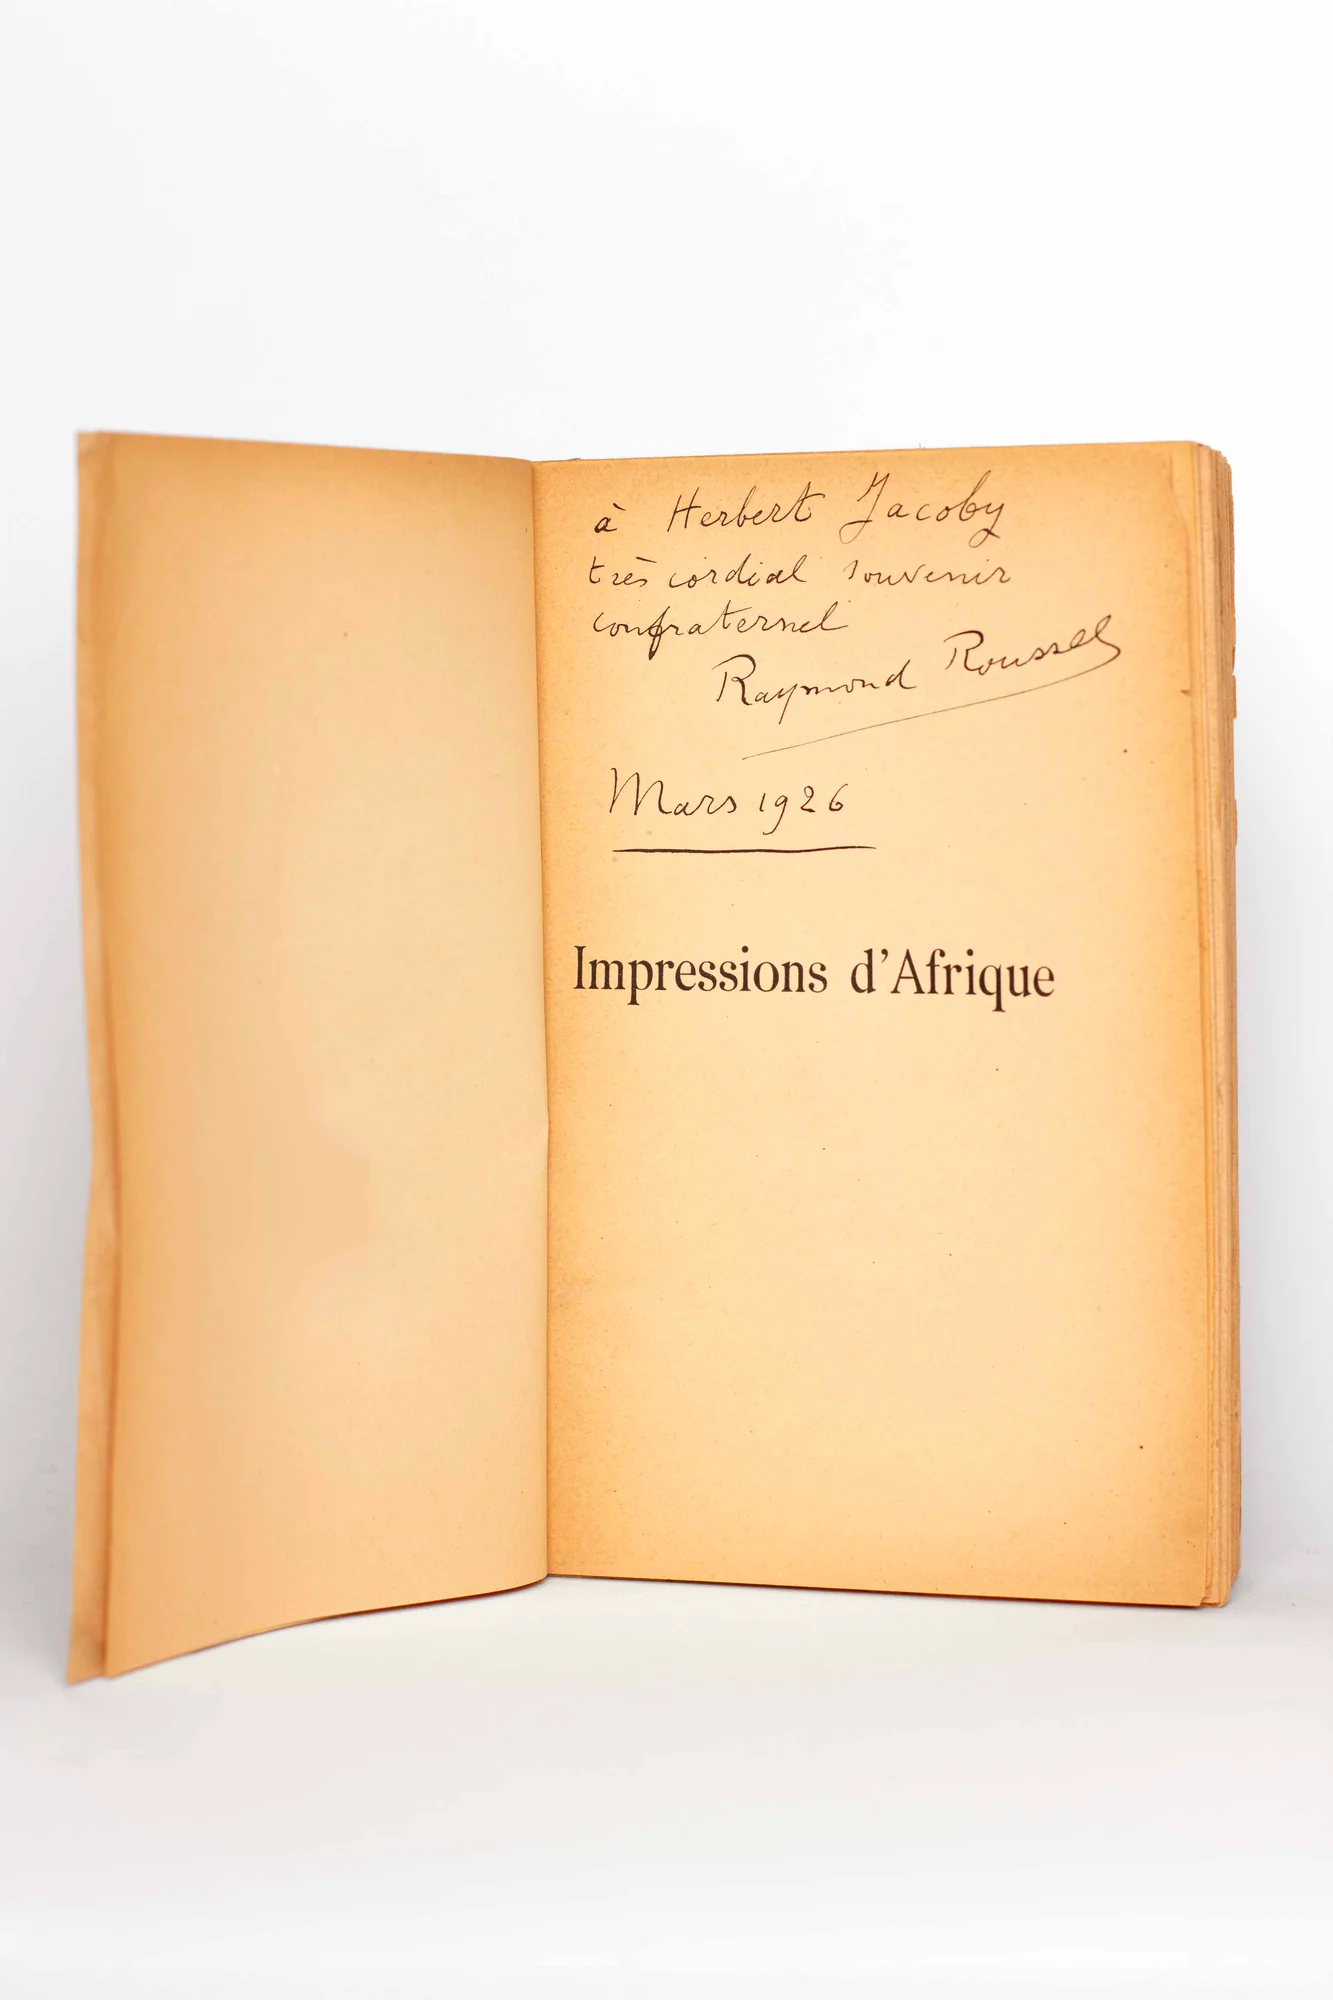 à Herbert Jacoby
très cordial souvenir
confraternel
Raymond Roussel
Mars 1926
Impressions d'Afrique